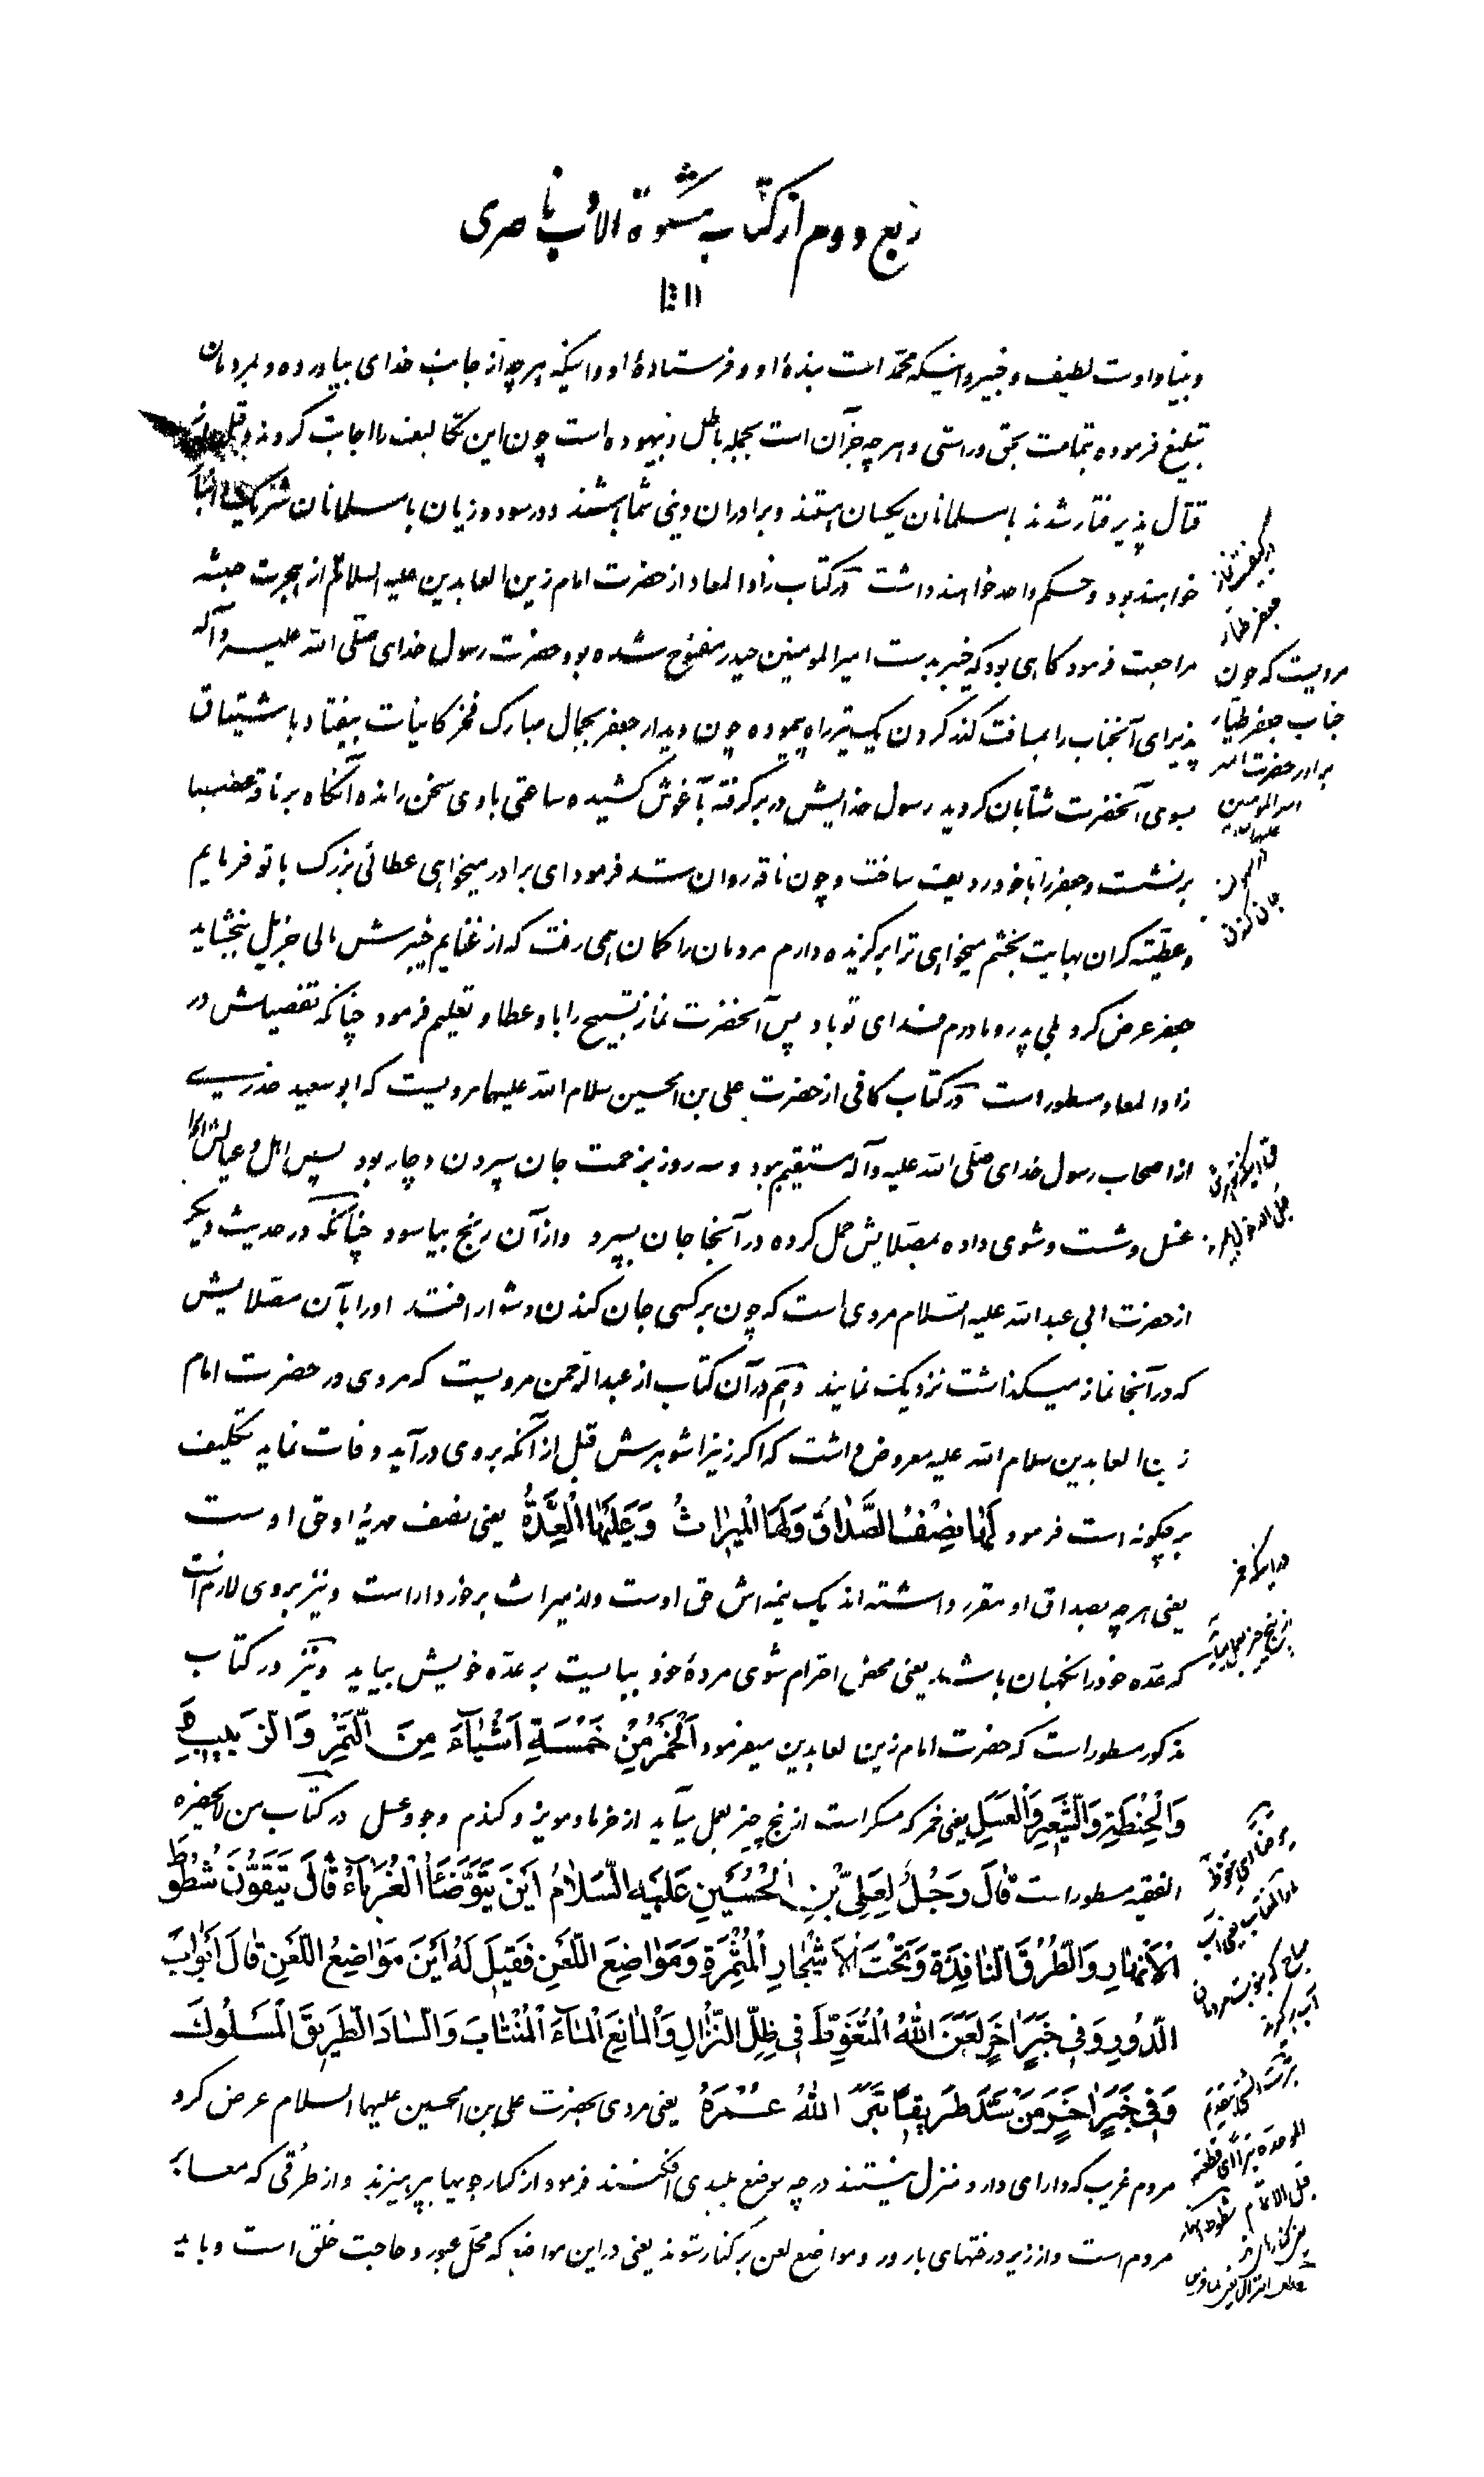 ربع دوم از کتاب مشکوة الادب ناصری
و بینا و اوست لطیف و خبیر و اینکه محمّد است بندهٔ او و فرستادهٔ او و اینکه هرچه از جانب خدای بیاورده و بمردمان
تبلیغ فرموده بتمامت بحق و راستی و هر چه جز آن است بجمله باطل و بیهوده است چون این تکالیف را اجابت کردند و
قتال پذیرفتار شدند با مسلمانان یکسان هستند و برادران دینی شما باشند و در سود و زیان با مسلمانان شریک
خواهند بود و حکم واحد خواهند داشت در کتاب زاد المعاد از حضرت امام زین العابدین علیه السلام از هجرت حبشه
مراجعت فرمود گاهی بود که خیبر بدست امیر المومنین حیدر مفتوح شده بود حضرت رسول خدای صلّی الله علیه و آله
پذیرای آنجناب را بمسافت گذر کردن یکتیر راه پیموده چون دیدار جعفر بجمال مبارک فخر کاینات بیفتاد با شتیاق
بسوی آنحضرت شتابان کردید رسول خدایش در برگرفته بآغوش کشیده ساعتی باوی سخن رانده آنگاه بر ناقه عضبا
برنشست و جعفر را با خود ردیف ساخت و چون ناقه روان شد فرمود ای برادر میخواهی عطائی بزرگ با تو فرمایم
و عطیّته گران بهایت بخشم میخواهی ترا برگزیده دارم مردمان را گمان همی رفت که از غنایم خیبرش مالی جزیل بخشاید
جعفر عرض کرد بلی پدر و مادرم فدای تو باد پس آنحضرت نماز تسبیح را با و عطا و تعلیم فرمود چنانکه تفصیلش در
زاد المعاد مسطور است در کتاب کافی از حضرت علی بن الحسین سلام الله علیهما مرویست که ابو سعید خدری
از اصحاب رسول خدای صلّی الله علیه و آله مستقیم بود و سه روز بزحمت جان سپردن دچار بود پس اهل و عیالش او را
غسل و شست و شوی داده بمصلّایش حمل کرده در آنجا جان بسپرد و از آن رنج بیاسود چنانکه در حدیث دیگر
از حضرت ابی عبد الله علیه السّلام مروی است که چون بر کسی جان کندن دشوار افتد او را بآن مصلّایش
که در آنجا نماز میگذاشت نزدیک نمایند و هم در آن کتاب از عبد الرحمن مرویست که مردی در حضرت امام
زین العابدین سلام الله علیه معروض داشت که اگر زنیرا شوهرش قبل از آنکه بروی درآید وفات نماید تکلیف
بر چگونه است فرمود لَهٰا نِصْفُ الصَّدٰاقِ وَلَهَا الْمیراثُ وَ عَلَیْهَا الْعِدَّةُ یعنی نصف مهریهٔ او حق اوست
یعنی هر چه بصداق او مقرر داشته اند یک نیمه اش حق اوست و از میراث برخوردار است و نیز بروی لازم است
که عده خود را نگهبان باشد یعنی محض احترام شوی مردهٔ خود ببایست بر عدّه خویش بپاید و نیز در کتاب
مذکور مسطور است که حضرت امام زین العابدین میفرمود اَلْخَمْرُ مِنْ خَمْسَةِ اَشْیٰآءَ مِنَ التَّمْرِ وَ الزَّبیبِ
وَالْحِنْطَةِ وَ الشَّعیرِ وَ الْعَسَلِ یعنی خمر که مسکر است از پنج چیز بعمل میآید از خرما و مویز و گندم و جو و عسل در کتاب من لایحضره
الفقیه مسطور است قٰالَ رَجُلٌ لِعَلِیِّ بْنِ الْحُسَیْنِ عَلَیْهِ السَّلاٰمُ اَیْنَ یَتَوَضَّأُ الْغُرَبٰآءُ قٰالَ یَتَّقُونَ شُطُوطَ
الْاَنْهٰارِ وَ الطُّرُقَ النّٰافِذَةَ وَ تَحْتَ الْاَشْجٰارِ الْمُثْمِرَةِ وَ مَوٰاضِعَ اللَّعْنِ فَقیلَ لَهُ اَیْنَ مَوٰاضِعُ اللَّعْنِ قٰالَ اَبْوٰابُ
الدُّورِ وَ فی خَبَرٍ اٰخَرَ لَعَنَ اللهُ الْمُتَغَوِّطَ فی ظِلِّ النُّزّٰالِ وَ الْمٰانِعَ الْمٰآءَ الْمُنْتٰابَ وَ السّٰادَّ الطَّریقَ الْمَسْلُوکَ
وَ فی خَبَرٍ اٰخَرَ مَنْ سَدَّ طَریقًا بَتَرَ اللهُ عُمْرَهُ یعنی مردی بحضرت علی بن الحسین علیهما السلام عرض کرد
مردم غریب که دارای دار و منزل نیستند در چه موضع پلیدی افکنند فرمود از کنار جویها بپرهیزند و از طرقی که معابر
مردم است و از زیر درختهای بارور و مواضع لعن بر کنار شوند یعنی در این مواضع که محّل عبور و حاجت خلق است و باید
در کیفیت نماز
جعفر طیار
مرویست که چون
جناب جعفر طیار
برادر حضرت
امیر المومنین
علیهما السلام
جان کندن
در اینکه خمر
از پنج چیز بعمل میآید